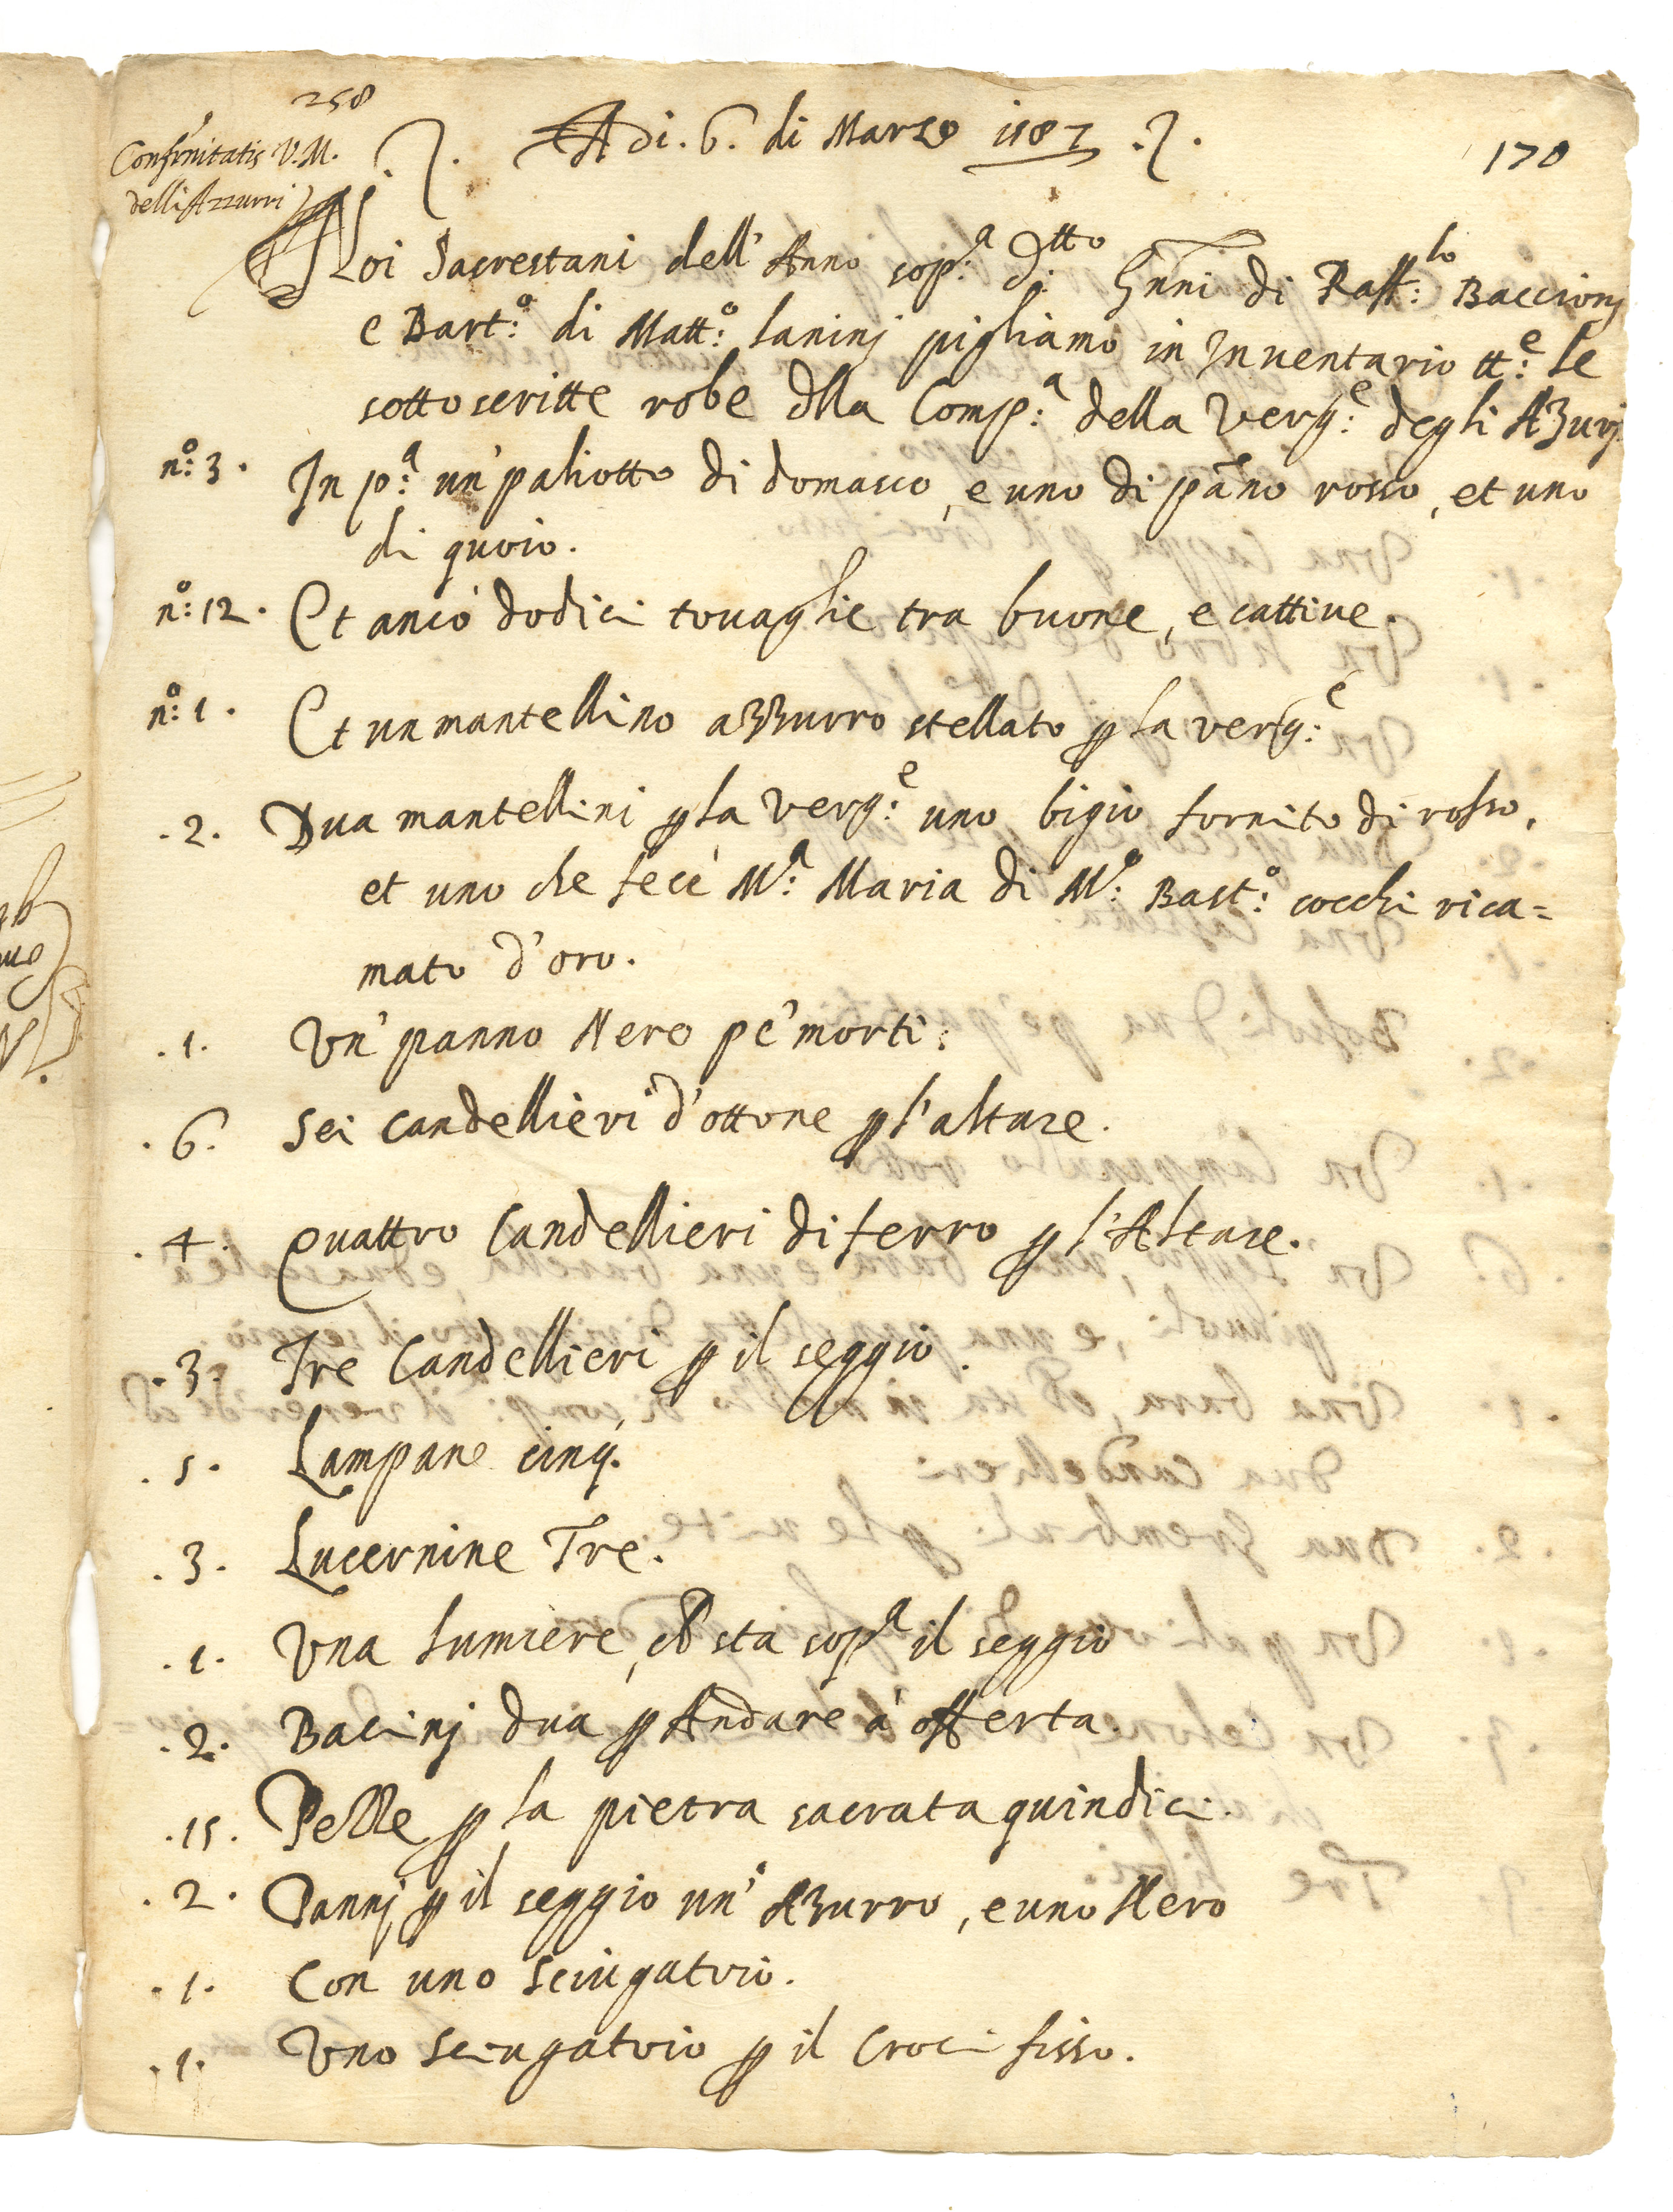 258
Confrnitatis V. M.
delli Azzurri
Adi. 6. di Marzo 1587
170
Noi Sacrestani dell'Anno sop:a d:tto Gnni di Raff:lo Baccionj
e Bart:o di Matt:o Laninj pigliamo in Inventario tt:e le
sottoscritte robe dlla Comp:a della Verg:e degli AZurj
n:o 3. In p:a un'paliotto di domasco, e uno di pāno rosso, et uno
di quoio.
n:o 12. Et anco dodici tovaglie tra buone, e cattiue.
n:o 1. Et un mantellino azzurro stellato p la verg:e
.2. Dua mantellini p la Verg:e uno bigio fornito di rosso,
et uno che fece M:a Maria di M:o Bast:o cocchi rica=
mato d'oro.
.1. Un'panno Nero pe'morti.
.6. Sei candellieri d'ottone p l'altare.
.4. Quattro Candellieri di ferro p l'Altare.
.3. Tre Candellieri p il seggio.
.5. Lampane cinq.
.3. Lucernine Tre.
.1. Una lumiere, ch sta sop:a il seggio
.2. Bacinj dua p Andare à offerta.
.15. Pelle p la pietra sacrata quindici.
.2. Pannj p il seggio un'AZurro, e uno Nero
.1. Con uno sciugatoio.
.1. Uno sciugatoio p il Crocifisso.